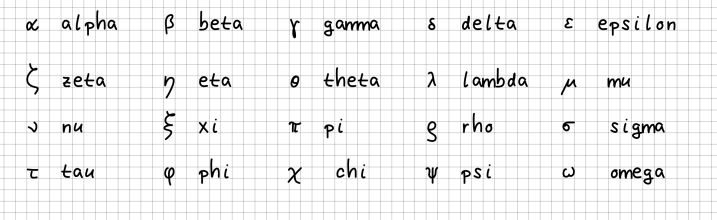 α alpha β beta γ gamma δ delta ε epsilon
ζ zeta η eta θ theta λ lambda μ mu
ν nu ξ xi π pi ϱ rho σ sigma
τ tau φ phi χ chi ψ psi ω omega